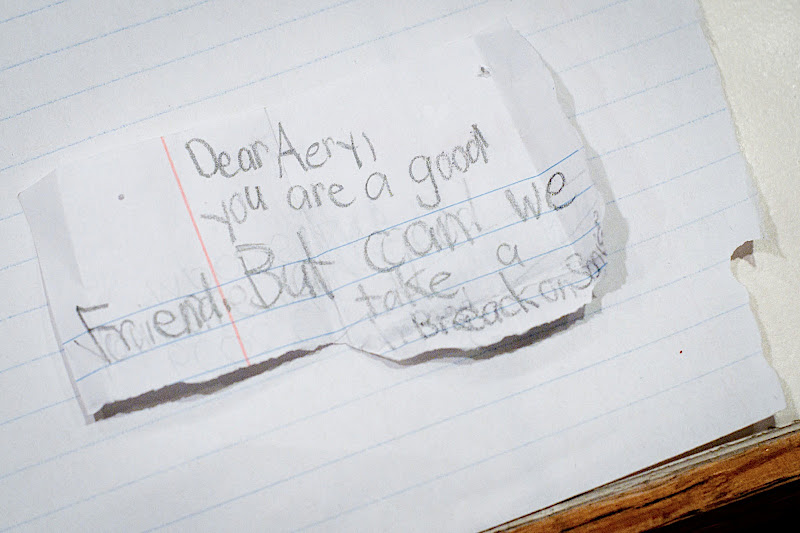 Dear Aery,
you are a good
Friend. But can we
take a
Breack or